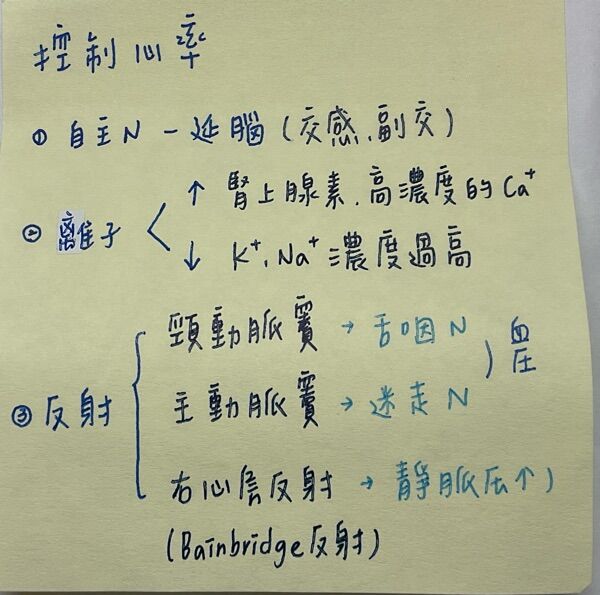 控制心率
① 自主N－延腦(交感、副交)
② 離子
↑ 腎上腺素、高濃度的Ca⁺
↓ K⁺、Na⁺濃度過高
③ 反射
頸動脈竇 → 舌咽N
主動脈竇 → 迷走N
) 血壓
右心房反射 → 靜脈压↑)
(Bainbridge反射)